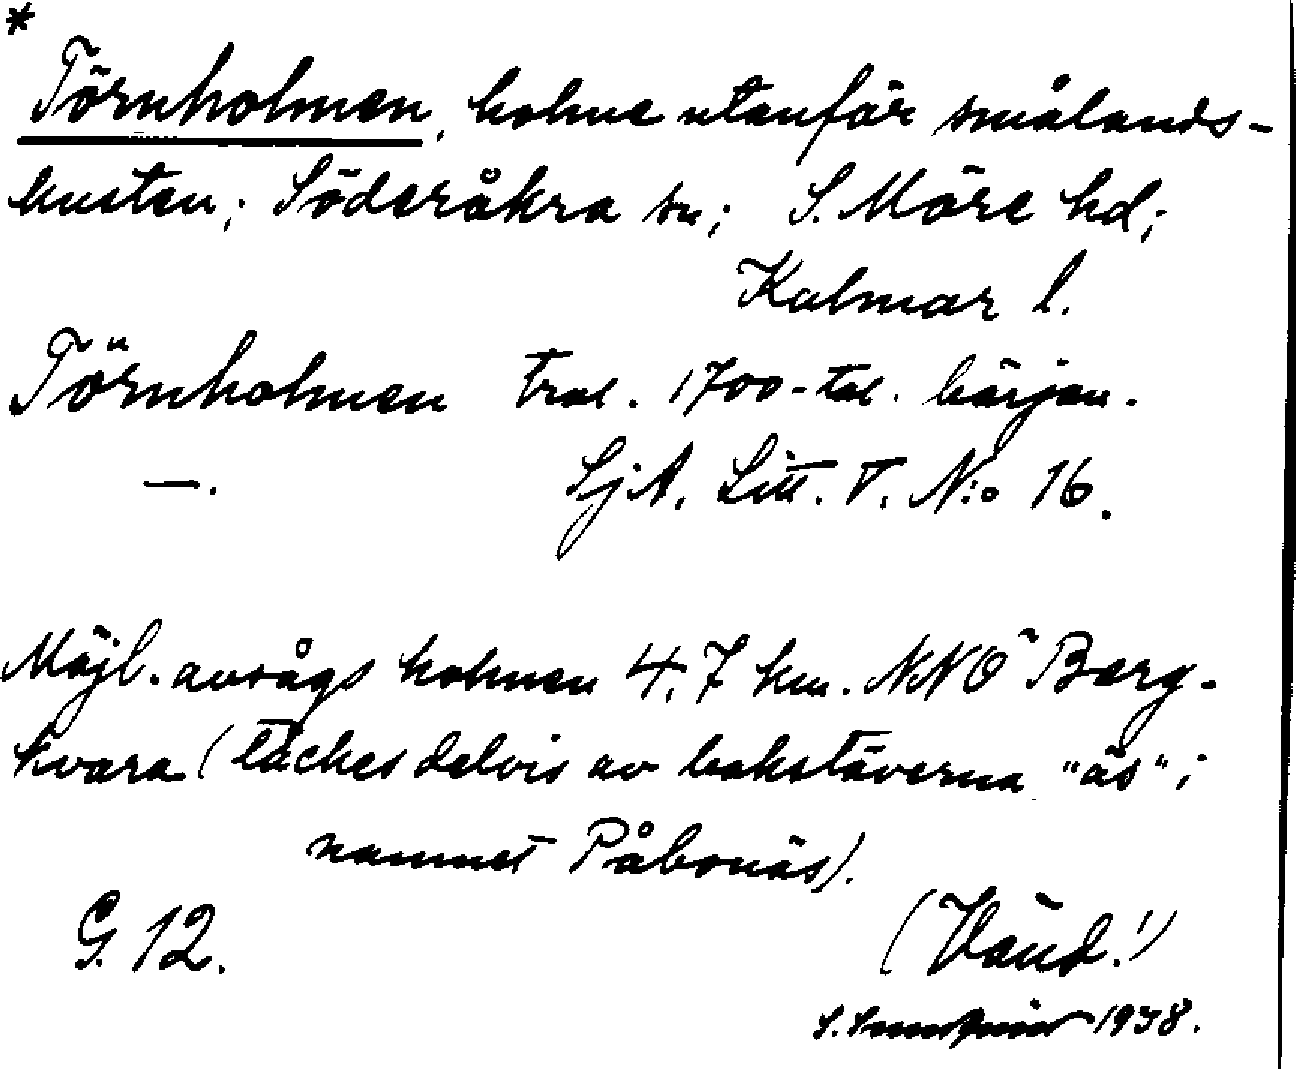 *
Törnholmen, holme utanför smålands-
kusten; Söderåkra sn; S. Möre hd;
Kalmar l.
Törnholmen trol. 1700-tal. början.
—. SjA. Litt. T. N:o 16.
Möjl. avsågs holmen 4,7 km. NNO Berg-
kvara (täckes delvis av bokstäverna "äs" i
namnet Påbonäs).
G. 12. (Vänd!)
S. 1938.